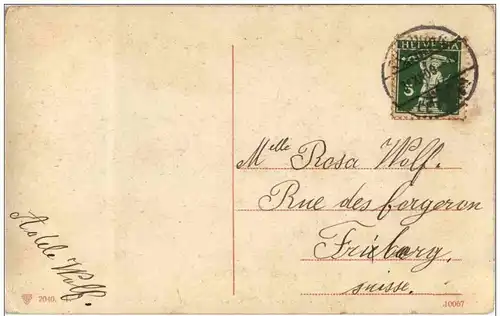 HELVETIA
5
Mlle Rosa Wolf.
Rue des forgeron
Friborg.
suisse.
Adele Wolf.
2040.
10067